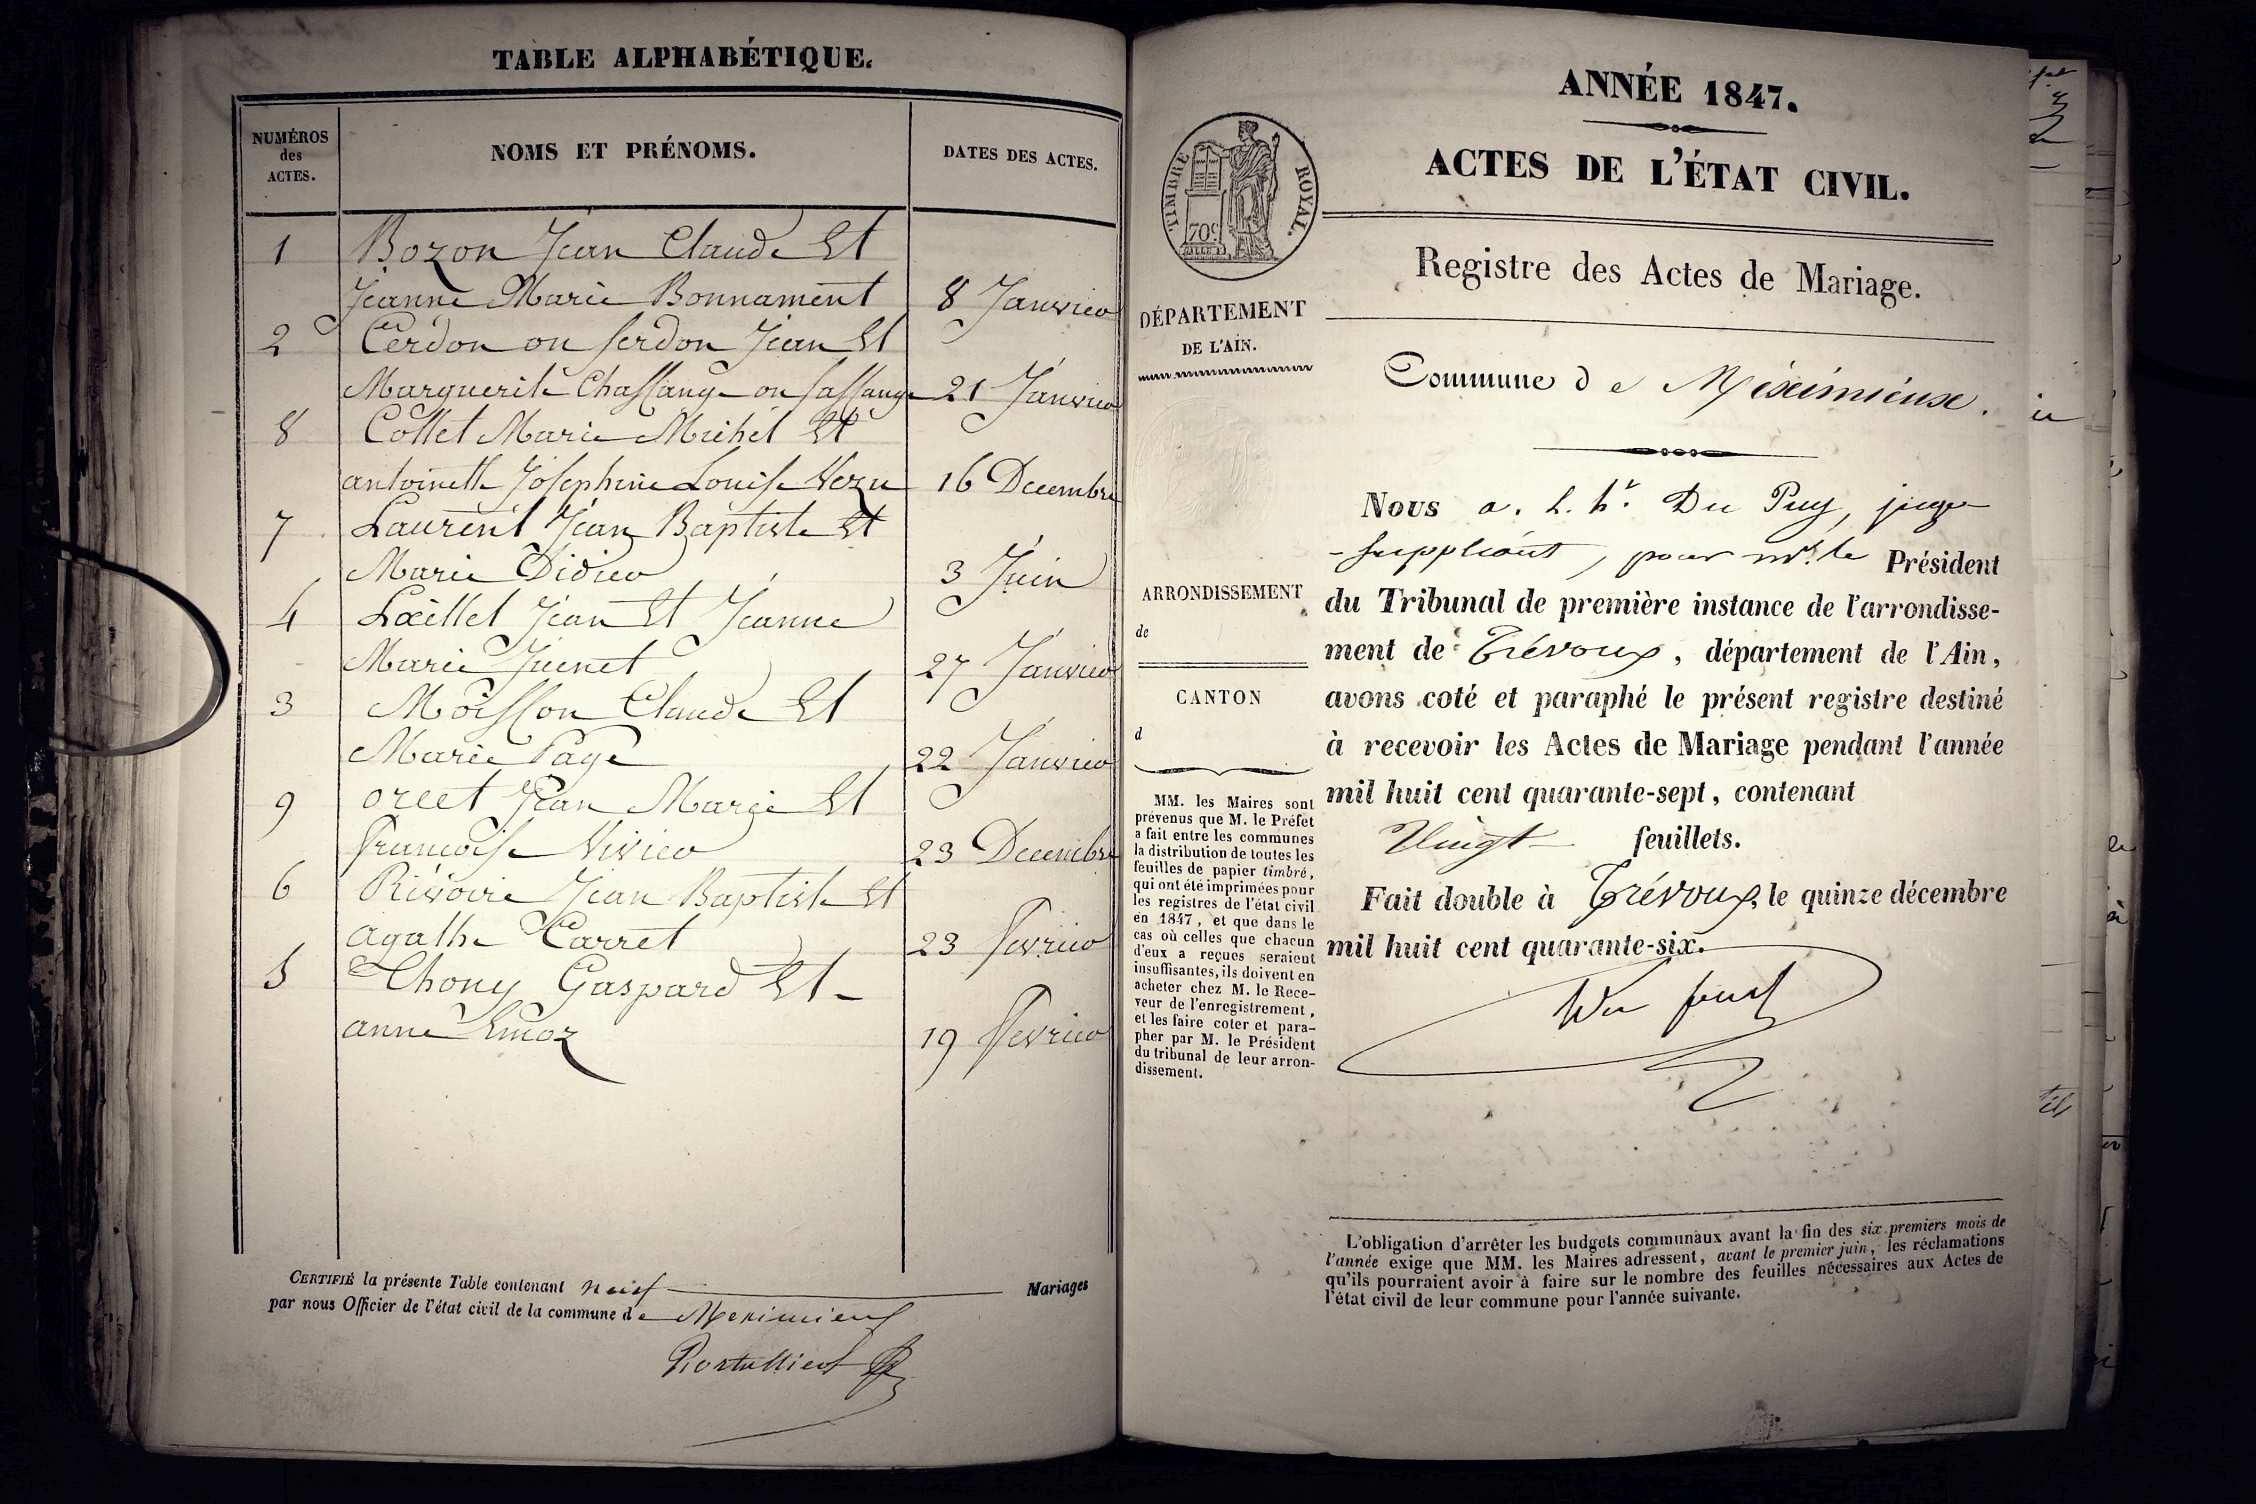 TABLE ALPHABÉTIQUE.
NUMÉROS
des
ACTES.
NOMS ET PRÉNOMS.
DATES DES ACTES.
1 Bozon Jean Claude Et
Jeanne Marie Bonnament 8 Janvier
2 Cerdon ou serdon Jean Et
Marguerite Chassange ou sassange 21 Janvier
8 Collet Marie Michel Et
antoinette Josephine Louise Vezu 16 Decembre
7 Laurent Jean Baptiste Et
Marie Didier 3 Juin
4 Lœillet Jean Et Jeanne
Marie Juenet 27 Janvier
3 Moisson Claude Et
Marie Page 22 Janvier
9 orcet Jean Marie Et
françoise Vivier 23 Decembre
6 Rivoire Jean Baptiste Et
agathe Carret 23 fevrier
5 Thony Gaspard Et
anne 19 fevrier
CERTIFIÉ la présente Table contenant neuf Mariages
par nous Officier de l'état civil de la commune de Meximieux
ANNÉE 1847.
ACTES DE L'ÉTAT CIVIL.
TIMBRE ROYAL.
70c
Registre des Actes de Mariage.
DÉPARTEMENT
DE L'AIN.
Commune de Meximieux.
Nous a. L. h. Du Puy, juge
suppléant, pour mr. le Président
du Tribunal de première instance de l'arrondisse-
ment de Trévoux, département de l'Ain,
avons coté et paraphé le présent registre destiné
à recevoir les Actes de Mariage pendant l'année
mil huit cent quarante-sept, contenant
Vingt feuillets.
Fait double à Trévoux, le quinze décembre
mil huit cent quarante-six.
ARRONDISSEMENT
de
CANTON
d
MM. les Maires sont
prévenus que M. le Préfet
a fait entre les communes
la distribution de toutes les
feuilles de papier timbré,
qui ont été imprimées pour
les registres de l'état civil
en 1847, et que dans le
cas où celles que chacun
d'eux a reçues seraient
insuffisantes, ils doivent en
acheter chez M. le Rece-
veur de l'enregistrement,
et les faire coter et para-
pher par M. le Président
du tribunal de leur arron-
dissement.
L'obligation d'arrêter les budgets communaux avant la fin des six premiers mois de
l'année exige que MM. les Maires adressent, avant le premier juin, les réclamations
qu'ils pourraient avoir à faire sur le nombre des feuilles nécessaires aux Actes de
l'état civil de leur commune pour l'année suivante.